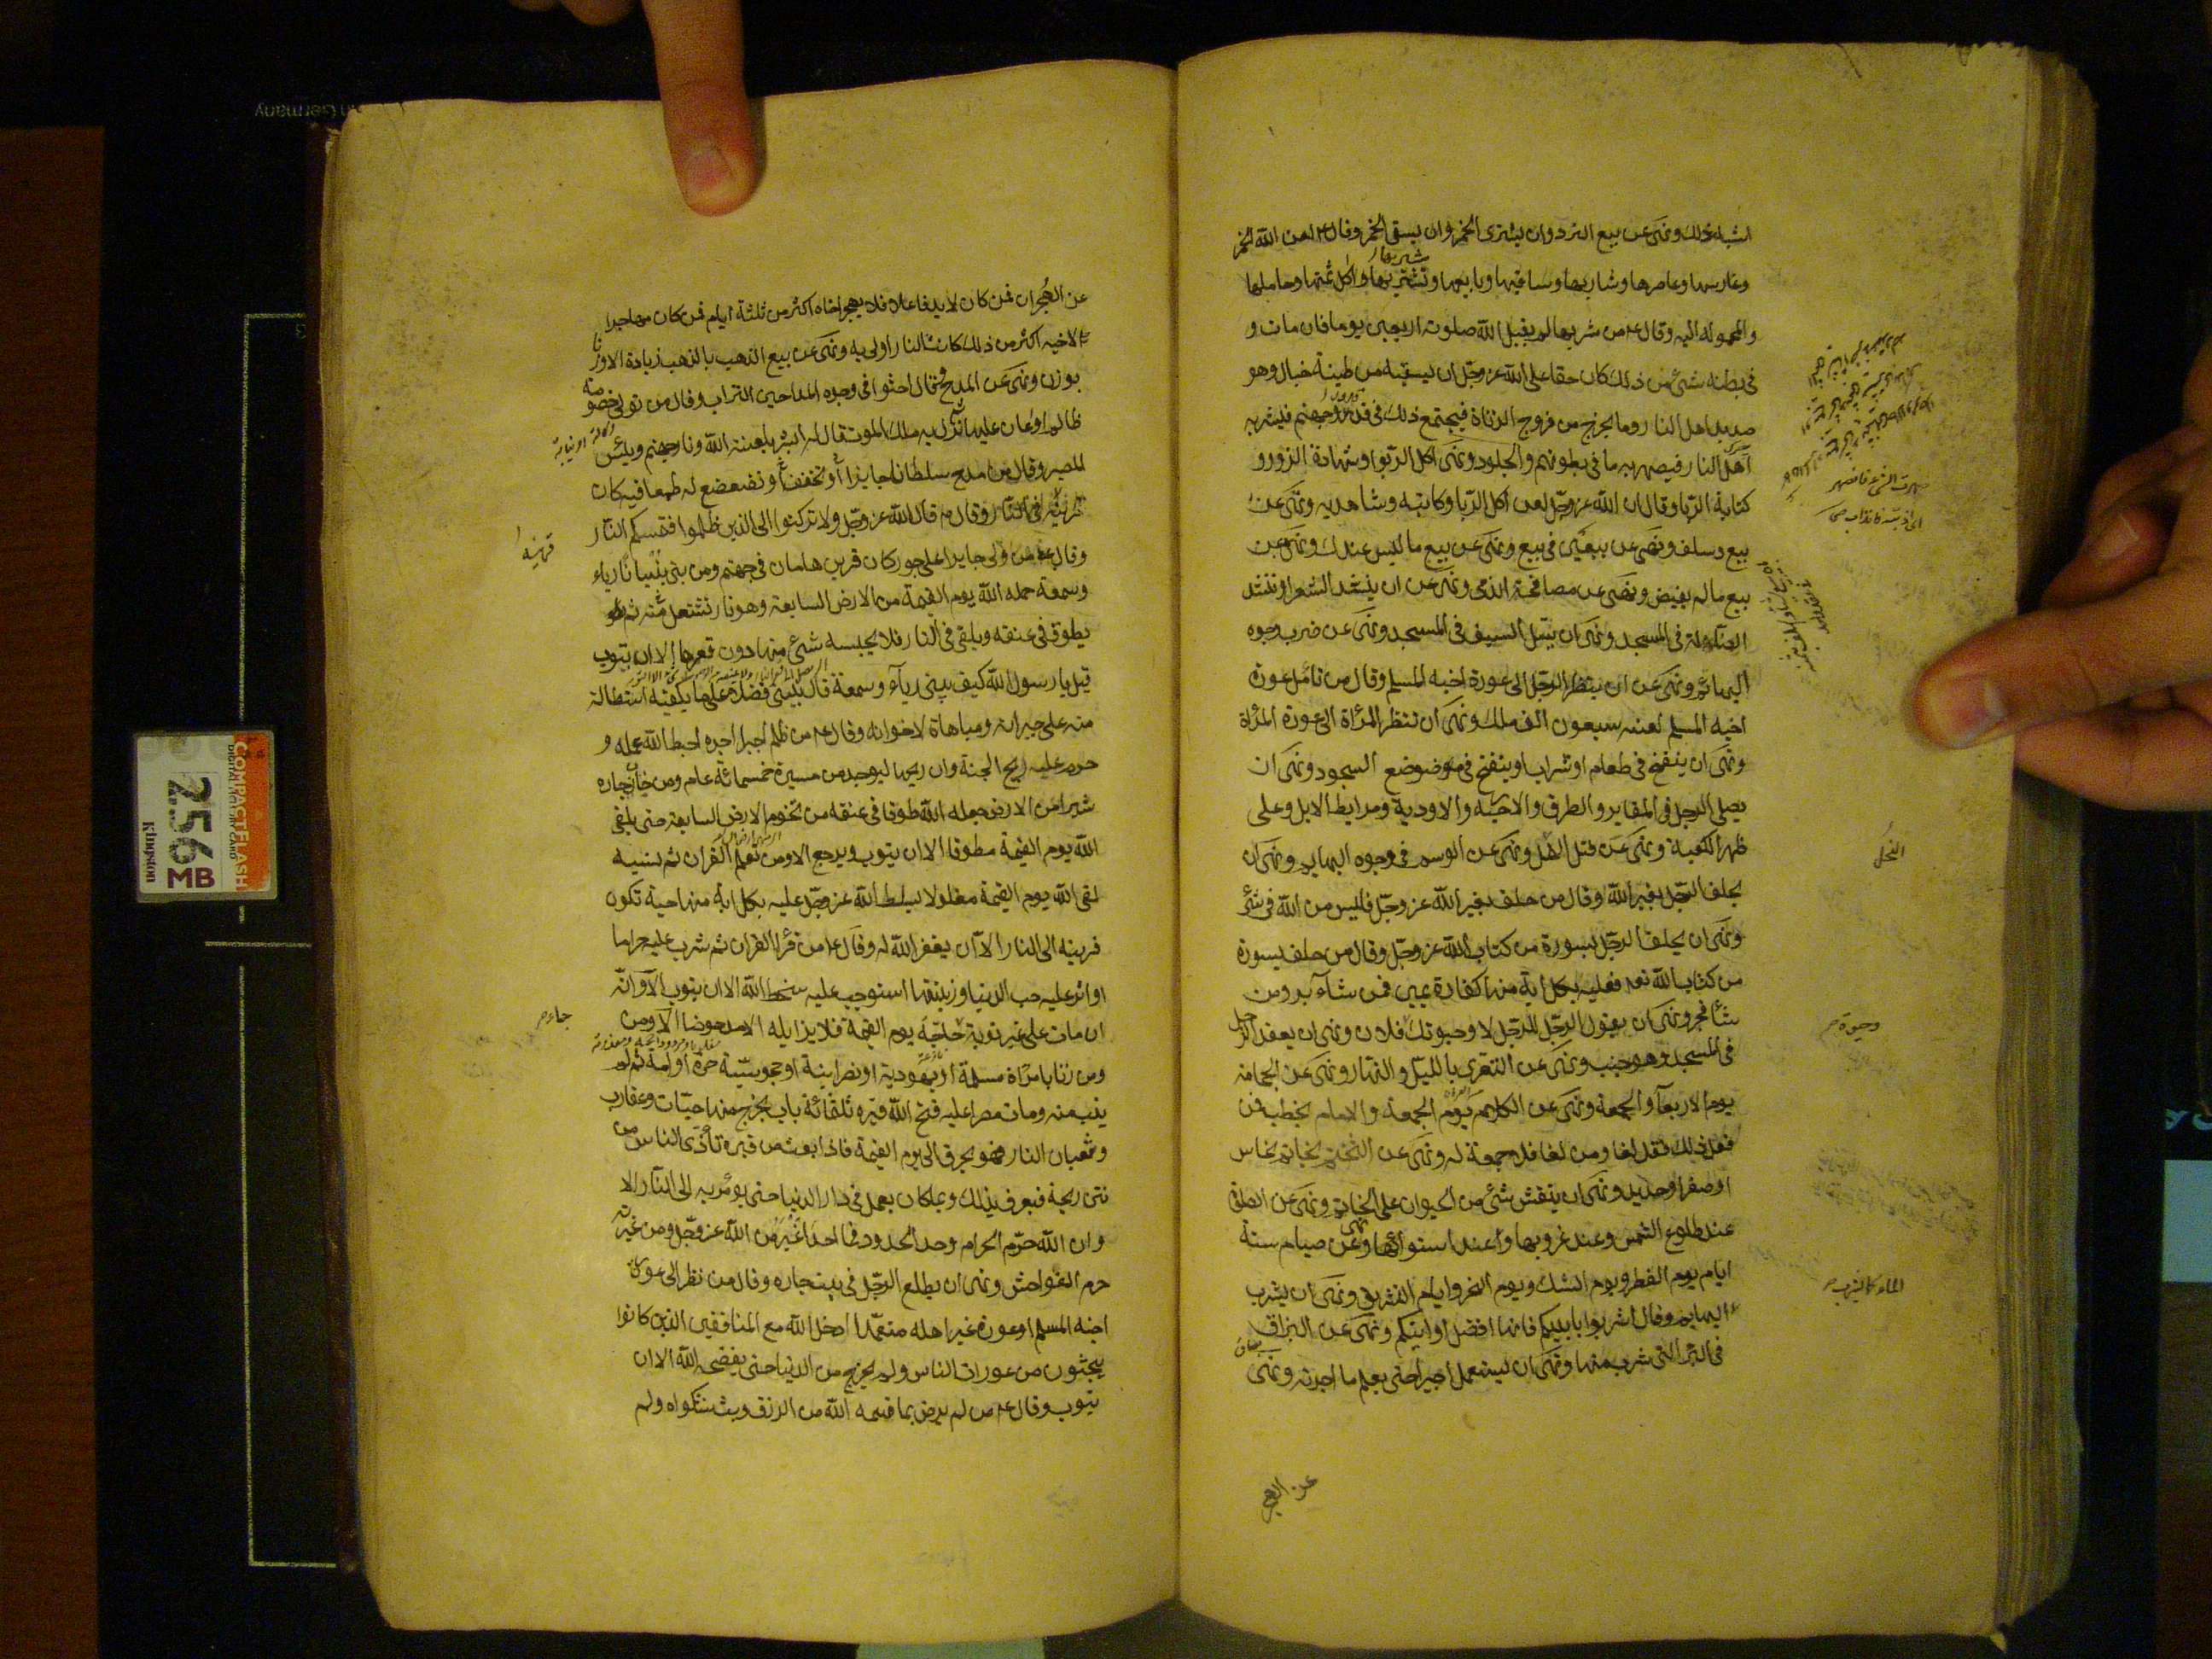 اشباه ذلك ونهى عن بيع النرد وان يشترى الخمر وان يسقى الخمر وقال ع لعن الله الخمر
وغارسها وعاصرها وشاربها وساقيها وبايعها ومشتريها واكل ثمنها وحاملها
والمحمولة اليه وقال ع من شربها لم يقبل الله صلوته اربعين يوما فان مات و
فى بطنه شئ من ذلك كان حقا على الله عز وجل ان يسقيه من طينة خبال وهو
صديد اهل النار وما يخرج من فروج الزناة فيجتمع ذلك فى قدور جهنم فيشربه
اهل النار فيصهر به ما فى بطونهم والجلود ونهى اكل الربوا وشهادة الزور و
كتابة الربا وقال ان الله عز وجل لعن اكل الربا وكاتبه وشاهديه ونهى عن
بيع وسلف ونهى عن بيعين فى بيع ونهى عن بيع ما ليس عندك ونهى عن
بيع ما لم يقبض ونهى عن مصافحة الذمى ونهى عن ان ينشد الشعر او ننشد
الضالة فى المسجد ونهى ان يسل السيف فى المسجد ونهى عن ضرب وجوه
البهائم ونهى عن ان ينظر الرجل الى عورة اخيه المسلم وقال من تامل عورة
اخيه المسلم لعنه سبعون الف ملك ونهى ان تنظر المرأة الى عورة المرأة
ونهى ان ينفخ فى طعام او شراب او ينفخ فى موضوضع السجود ونهى ان
يصلى الرجل فى المقابر والطرق والارحية والاودية ومرابط الابل وعلى
ظهر الكعبة ونهى عن قتل النحل ونهى عن الوسم فى وجوه البهايم ونهى ان
يحلف الرجل بغير الله وقال من حلف بغير الله عز وجل فليس من الله فى شئ
ونهى ان يحلف الرجل بسورة من كتاب الله عز وجل وقال من حلف بسورة
من كتاب الله تعم فعليه بكل اية منها كفارة يمين فمن شآء بر ومن
شآ فجر ونهى ان يقول الرجل للرجل لا وحيوتك فلان ونهى ان يقعد الرجل
فى المسجد وهو جنب ونهى عن التعرى بالليل والنهار ونهى عن الحجامة
يوم الاربعآ والجمعة ونهى عن الكلام يوم الجمعة والامام يخطب فمن
فعل ذلك فقد لغا ومن لغا فلا جمعة له ونهى عن التختم بخاتم نحاس
او صفر او حديد ونهى ان ينقش شئ من الحيوان على الخاتم ونهى عن الصلوة
عند طلوع الشمس وعند غروبها وعند استوائها ونهى عن صيام ستة
ايام يوم الفطر ويوم الشك ويوم النحر وايام التشريق ونهى ان يشرب
البهايم وقال اشربوا بايديكم فانها افضل اوانيكم ونهى عن البزاق
فى البئر التى شرب منها ونهى ان يستعمل اجير حتى يعلم ما اجرته ونهى
عن الهجر
النحل
وحيوة
الماء كما يشرب
عن الهجران فمن كان لابد فاعلا فلا يهجر اخاه اكثر من ثلثة ايام فمن كان مهاجرا
لاخيه اكثر من ذلك كانت النار اولى به ونهى عن بيع الذهب بالذهب زيادة الا وزنا
بوزن ونهى عن المدح وقال احثوا فى وجوه المداحين التراب وقال من تولى خصومة
ظالم او عان عليها نزل به ملك الموت قال له ابشر بلعنة الله ونار جهنم وبئس
المصير وقال من مدح سلطانا جايرا او تخفف وتضعضع له طمعا فيه كان
قرينه فى النار وقال ع قال الله عز وجل ولا تركنوا الى الذين ظلموا فتمسكم النار
وقال ع من ولى جايرا على جور كان قرين هامان فى جهنم ومن بنى بنيانا رياء
وسمعة حمله الله يوم القيمة من الارض السابعة وهو نار تشتعل منه ثم
يطوق فى عنقه ويلقى فى النار فلا يحبسه شئ منها دون قعرها الا ان يتوب
قيل يا رسول الله كيف يبنى رياء وسمعة قال يبنى فضلا على ما يكفيه استطالة
منه على جيرانه ومباهاة لاخوانه وقال ع من ظلم اجيرا اجره احبط الله عمله و
حرم عليه ريح الجنة وان ريحها ليوجد من مسيرة خمسمائة عام ومن خان جاره
شبرا من الارض جعله الله طوقا فى عنقه من تخوم الارض السابعة حتى يلقى
الله يوم القيمة مطوقا الا ان يتوب ويرجع الا ومن تعلم القران ثم نسيه
لقى الله يوم القيمة مغلولا يسلط الله عز وجل عليه بكل اية منها حية تكون
قرينه الى النار الا ان يغفر الله له وقال ع من قرا القران ثم شرب عليه حراما
او اثر عليه حب الدنيا وزينتها استوجب عليه سخط الله الا ان يتوب الا وانه
ان مات على غير توبة حاجه يوم القيمة فلا يزايله الا مدحوضا الا ومن
ومن زنا بامراة مسلمة او يهودية او نصرانية او مجوسية حرة او امة ثم لم
يتب منه ومات مصرا عليه فتح الله فى قبره ثلثمائة باب يخرج منها حيات وعقارب
وثعبان النار فهو يحرق الى يوم القيمة فاذا بعث من قبره تأذى الناس من
نتن ريحه فيعرف بذلك وبما كان يعمل فى دار الدنيا حتى يؤمر به الى النار الا
وان الله حرم الحرام وحد الحدود فما احد اغير من الله عز وجل ومن غيرته
حرم الفواحش ونهى ان يطلع الرجل فى بيت جاره وقال من نظر الى عورة
اخيه المسلم او عورة غير اهله متعمدا ادخل الله مع المنافقين الذين كانوا
يبحثون من عورات الناس ولم يخرج من الدنيا حتى يفضحه الله الا ان
يتوب وقال ع من لم يرض بما قسمه الله من الرزق وبث شكواه ولم
قرينه
جاء
COMPACTFLASH
256
MB
Kingston
in Germany